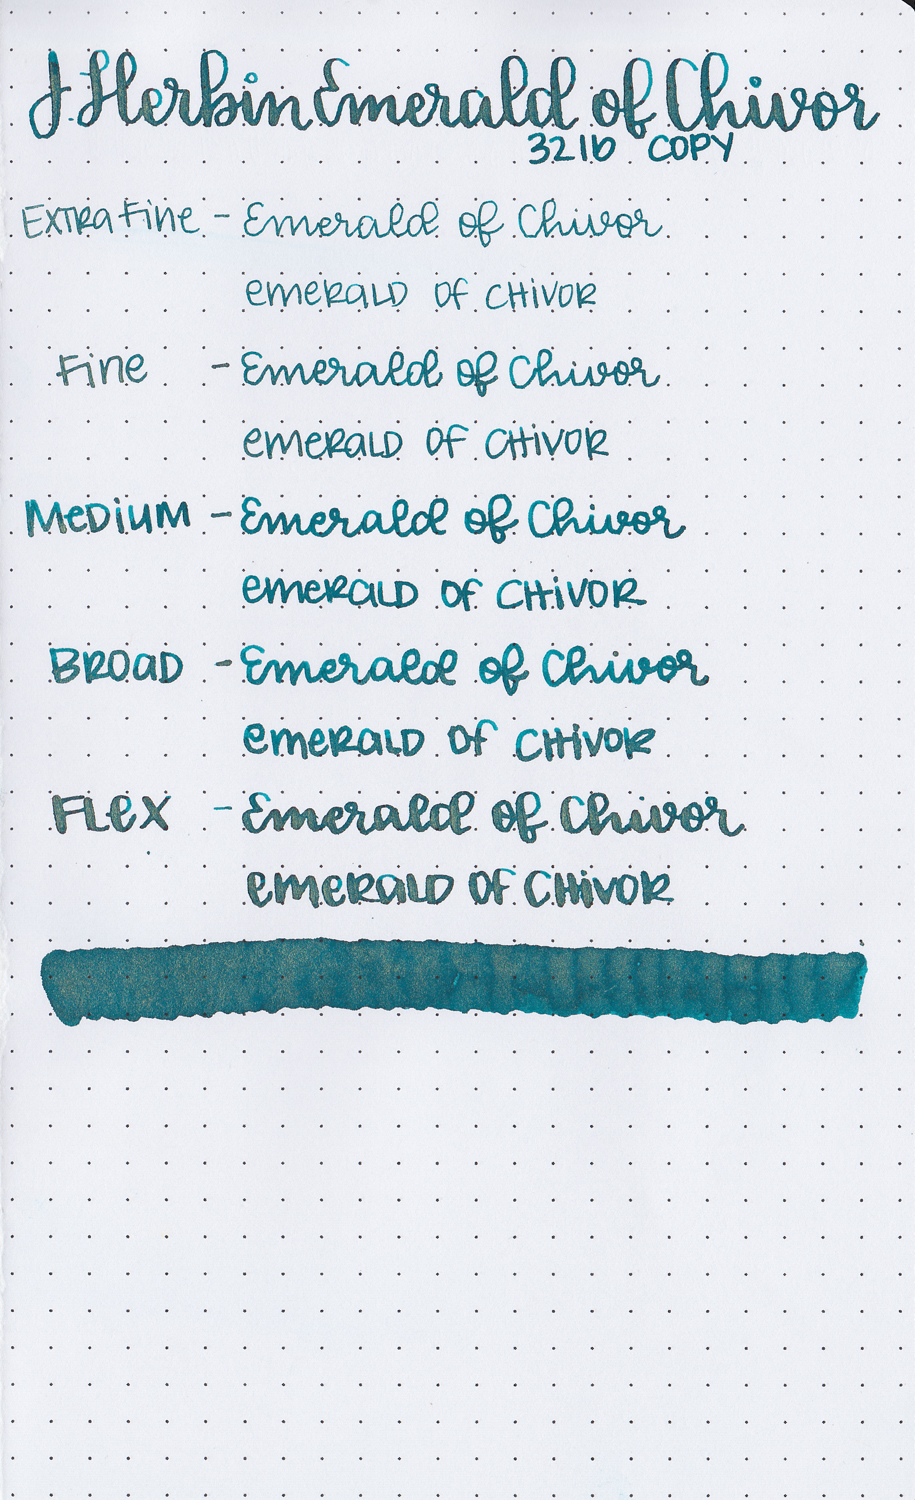 J Herbin Emerald of Chivor
32lb COPY
Extra Fine - Emerald of Chivor
emerald of Chivor
Fine - Emerald of Chivor
emerald of Chivor
Medium - Emerald of Chivor
emerald of Chivor
Broad - Emerald of Chivor
emerald of Chivor
Flex - Emerald of Chivor
emerald of Chivor